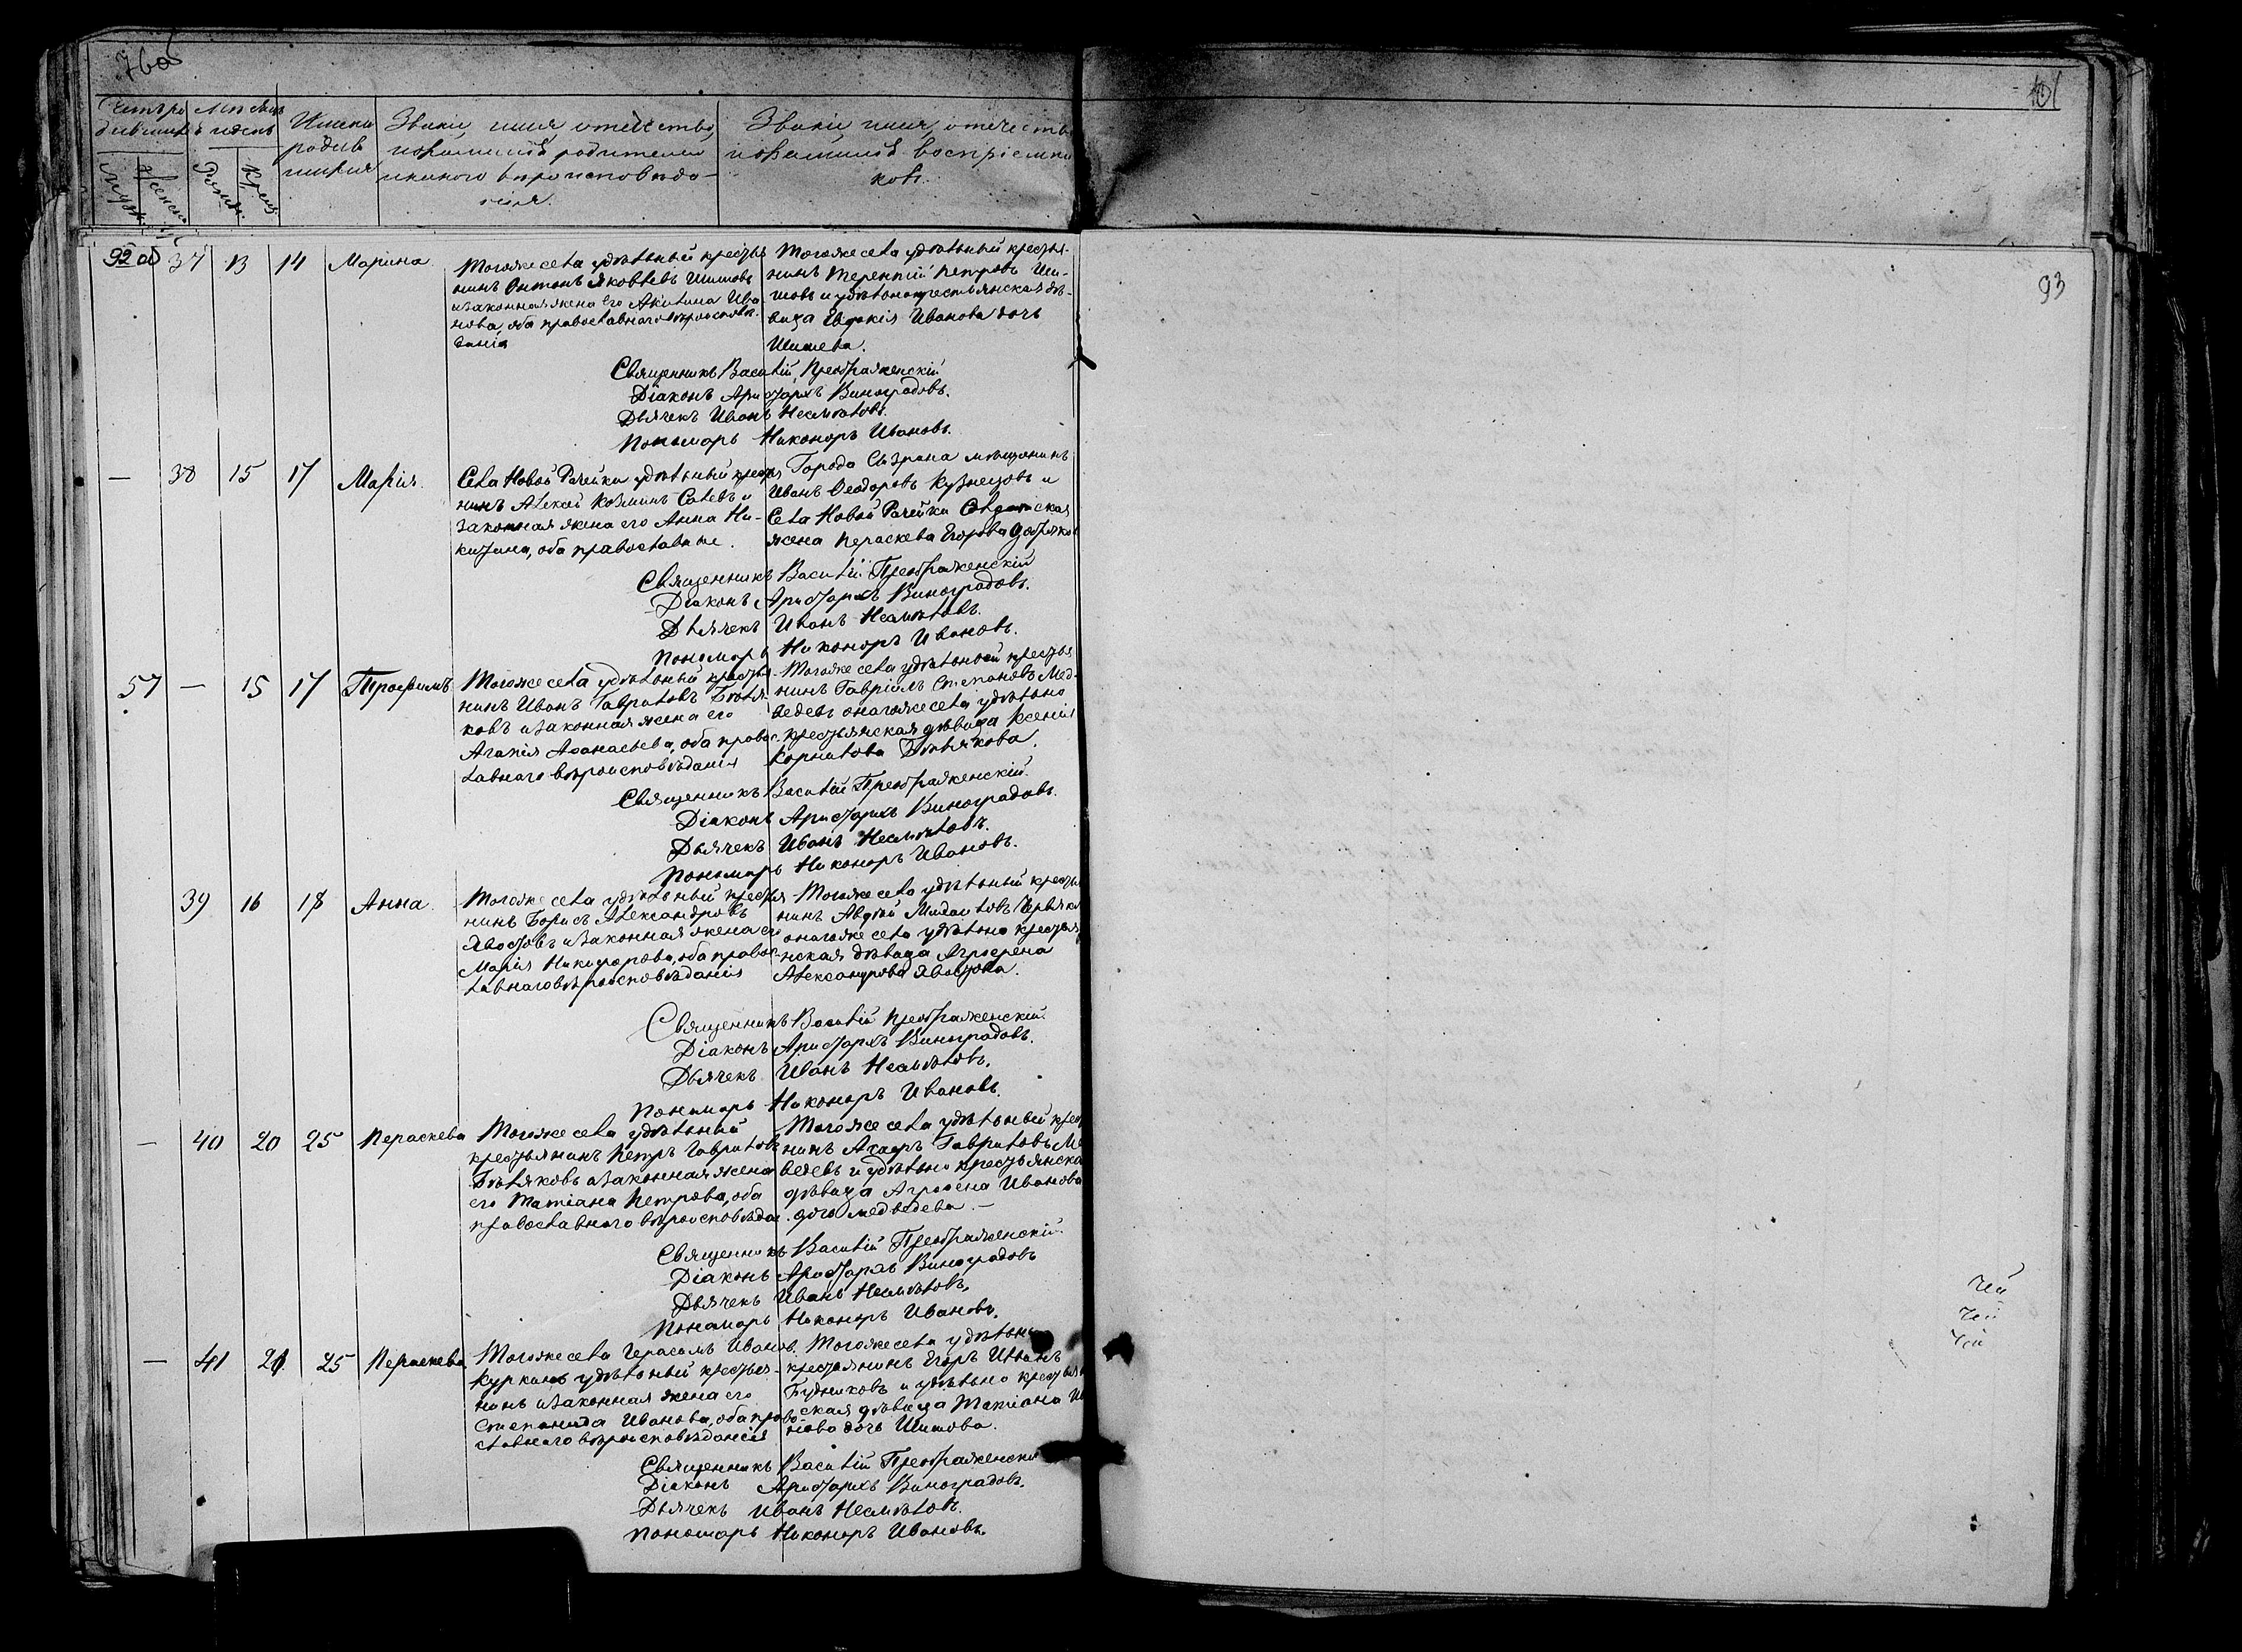 76об
101
Счетъ ро-
дившихся
Мужеска
Женска
Мѣсяцъ
и день
Рожден.
Крещ.
Имена
родив
шихся
Званіе, имя, отечество,
и фамилія родителей
и какого вѣроисповѣда-
нія.
Званіе, имя, отечество
и фамилія воспріемни
ковъ.
93
92об 37 13 14 Марина
Тогоже села удѣльный крестья
нинъ Антонъ Яковлевъ Шишовъ
и законная жена его Акилина Ива-
нова, оба православнаго вѣроисповѣ-
данія
Тогоже села удѣльный крестья-
нинъ Терентій Петровъ Ши-
шовъ и удѣльнокрестьянская дѣ-
вица Евдокія Иванова дочь
Шишева.
Священникъ Василій Преображенскій
Діаконъ Аристархъ Виноградовъ.
Дьячекъ Иванъ Несмѣловъ.
Пономарь Никаноръ Ивановъ.
— 38 15 17 Марія.
Села Новой Рачейки удѣльный крестья
нинъ Алексей Козминъ Солевъ и
законная жена его Анна Ни-
китина, оба православные.
Города Сызрана мѣщанинъ
Иванъ Ѳеодоровъ Кузнецовъ и
Села Новой Рачейки Солдатская
жена Пераскева Егорова Добряков
Священникъ Василій Преображенскій
Діаконъ Аристархъ Виноградовъ.
Дьячекъ Иванъ Несмѣловъ.
Пономарь Никаноръ Ивановъ.
57 — 15 17 Трофимъ
Тогоже села удѣльный крестья
нинъ Иванъ Гавриловъ Бѣля-
ковъ и законная жена его
Агапія Аѳанасьева, оба правос-
лавнаго вѣроисповѣданія
Тогоже села удѣльной крестья
нинъ Гавріилъ Степановъ Мед-
ведевъ онагоже села удѣльно
крестьянская дѣвица Ксенія
Корнилова Бѣлякова.
Священникъ Василій Преображенскій.
Діаконъ Аристархъ Виноградовъ.
Дьячекъ Иванъ Несмѣловъ.
Пономарь Никаноръ Ивановъ.
39 16 18 Анна.
Тогоже села удѣльный крестья
нинъ Борисъ Александровъ
Хвостовъ и законная жена его
Марія Никифорова, оба правос-
лавнаго вѣроисповѣданія
Тогоже села удѣльный крестья
нинъ Авдѣй Михаиловъ Червяков
онагоже села удѣльно крестья
нская дѣвица Агрофена
Александрова Хвостова.
Священникъ Василій Преображенскій.
Діаконъ Аристархъ Виноградовъ.
Дьячекъ Иванъ Несмѣловъ.
Пономарь Никаноръ Ивановъ.
— 40 20 25 Пераскева
Тогоже села удѣльный
крестьянинъ Петръ Гавриловъ
Бѣляковъ и законная жена
его Татіана Петрова, оба
православнаго вѣроисповѣдан.
Тогоже села удѣльный крес
нинъ Агафъ Гавриловъ Ме
ведевъ и удѣльно крестьянска
дѣвица Агрофена Иванова
дочь медведева. —
Священникъ Василій Преображенскій.
Діаконъ Аристархъ Виноградовъ
Дьячекъ Иванъ Несмѣловъ,
Пономарь Никаноръ Ивановъ.
— 41 21 25 Пераскева
Тогоже села Герасимъ Иванов.
Куркинъ удѣльный крестья-
нинъ и законная жена его
Степанида Иванова, оба право-
славнаго вѣроисповѣданія
Тогоже села удѣльны
крестьянинъ Егоръ Ивановъ
Будниковъ и удѣльно крестьян
ская дѣвица Татіана И
нова дочь Шишова.
Священникъ Василій Преображенскій
Діаконъ Аристархъ Виноградовъ.
Дьячекъ Иванъ Несмѣловъ.
Пономарь Никаноръ Ивановъ.